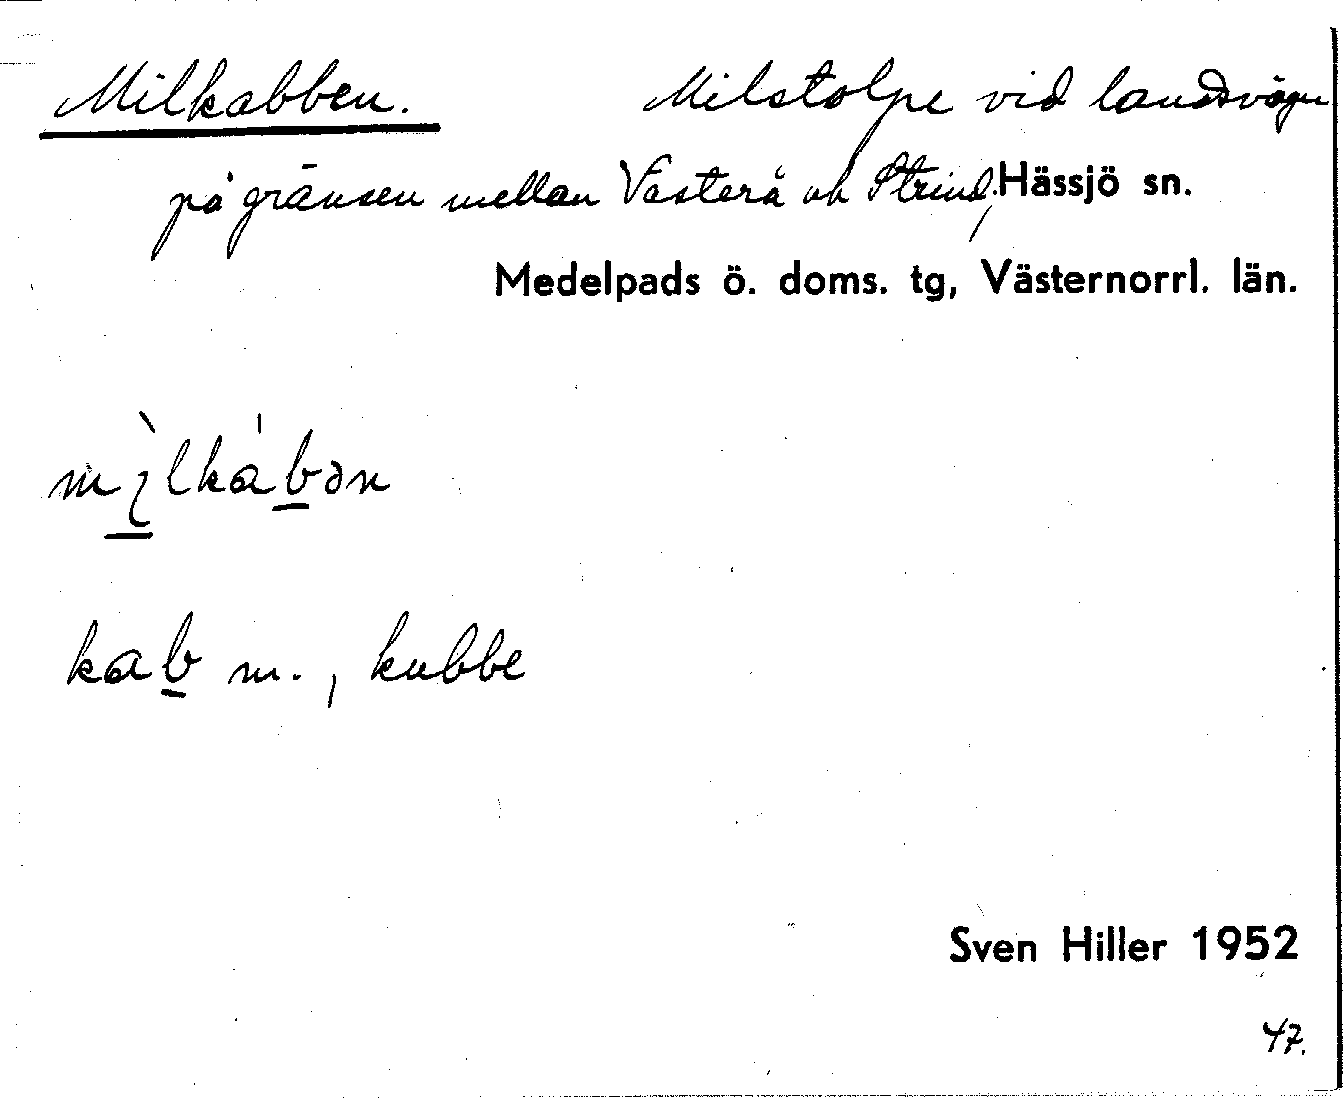 Milkabben. Milstolpe vid landsvägen
på gränsen mellan Västerå och Strind, Hässjö sn.
Medelpads ö. doms. tg, Västernorrl. län.
mìlkàbən
kab m., kubbe
Sven Hiller 1952
47.